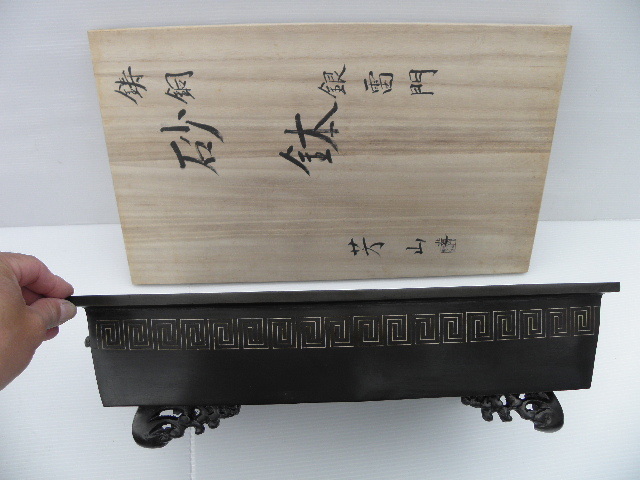 鋳銅 銀雷門
砂鉢
芳山